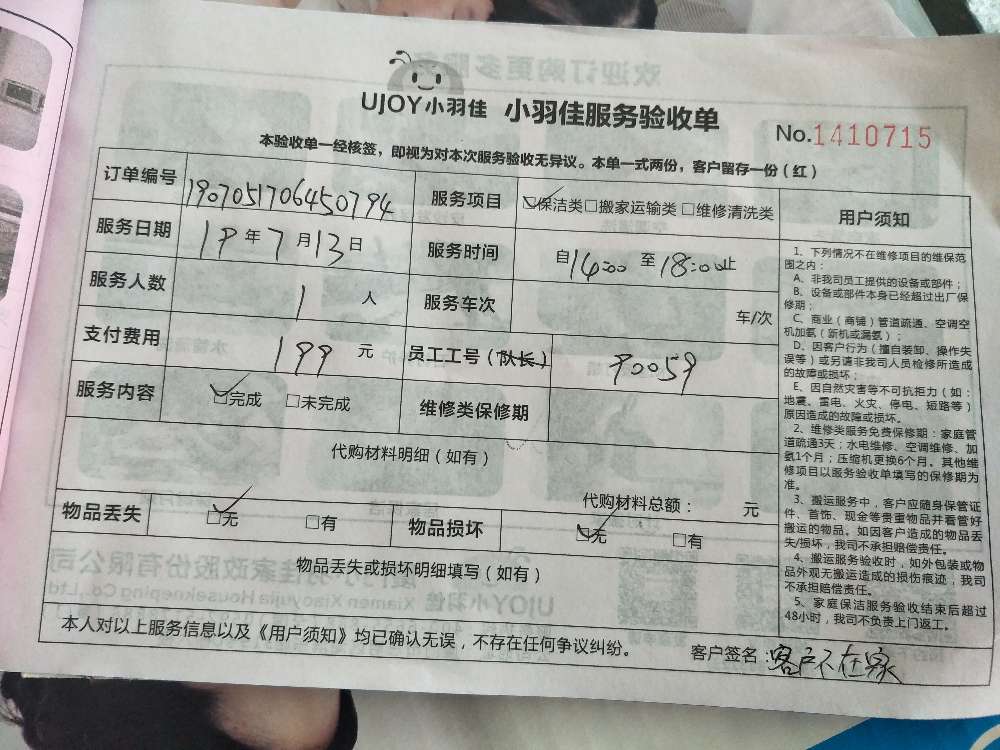 UJOY小羽佳 小羽佳服务验收单 No.1410715
本验收单一经核签，即视为对本次服务验收无异议。本单一式两份，客户留存一份（红）
订单编号 1907051706450794 服务项目 ☑保洁类□搬家运输类 □维修清洗类
服务日期 19年7月13日 服务时间 自14:00 至18:00止
服务人数 1 人 服务车次 车/次
支付费用 199 元 员工工号（队长） 90059
服务内容 ☑完成 □未完成 维修类保修期
代购材料明细（如有）
代购材料总额： 元
物品丢失 ☑无 □有 物品损坏 ☑无 □有
物品丢失或损坏明细填写（如有）
本人对以上服务信息以及《用户须知》均已确认无误，不存在任何争议纠纷。 客户签名：客户不在家
用户须知
1、下列情况不在维修项目的维保范
围之内：
A、非我司员工提供的设备或部件；
B、设备或部件本身已经超过出厂保
修期；
C、商业（商铺）管道疏通、空调空
机加氨（新机或漏氨）；
D、因客户行为（擅自装卸、操作失
误等）或另请非我司人员检修所造成
的故障或损坏；
E、因自然灾害等不可抗拒力（如：
地震、雷电、火灾、停电、短路等）
原因造成的故障或损坏。
2、维修类服务免费保修期：家庭管
道疏通3天；水电维修、空调维修、加
氨1个月；压缩机更换6个月。其他维
修项目以服务验收单填写的保修期为
准。
3、搬运服务中，客户应随身保管证
件、首饰、现金等贵重物品并看管好
搬运的物品。如因客户造成的物品丢
失/损坏，我司不承担赔偿责任。
4、搬运服务验收时，如外包装或物
品外观无搬运造成的损伤痕迹，我司
不承担赔偿责任。
5、家庭保洁服务验收结束后超过
48小时，我司不负责上门返工。